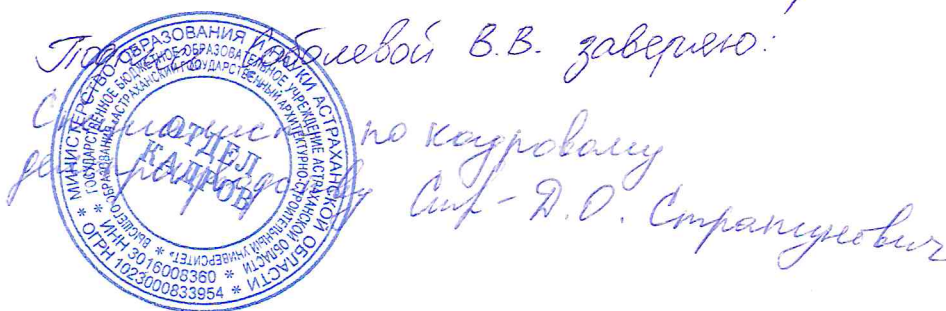 Подпись Соболевой В.В. заверяю:
Специалист по кадровому
делопроизводству Д.О. Страпчунович
МИНИСТЕРСТВО ОБРАЗОВАНИЯ И НАУКИ АСТРАХАНСКОЙ ОБЛАСТИ
* ИНН 3016008360 *
* ОГРН 1023000833954 *
ГОСУДАРСТВЕННОЕ БЮДЖЕТНОЕ ОБРАЗОВАТЕЛЬНОЕ УЧРЕЖДЕНИЕ АСТРАХАНСКОЙ ОБЛАСТИ
ВЫСШЕГО ОБРАЗОВАНИЯ «АСТРАХАНСКИЙ ГОСУДАРСТВЕННЫЙ АРХИТЕКТУРНО-СТРОИТЕЛЬНЫЙ УНИВЕРСИТЕТ»
ОТДЕЛ
КАДРОВ